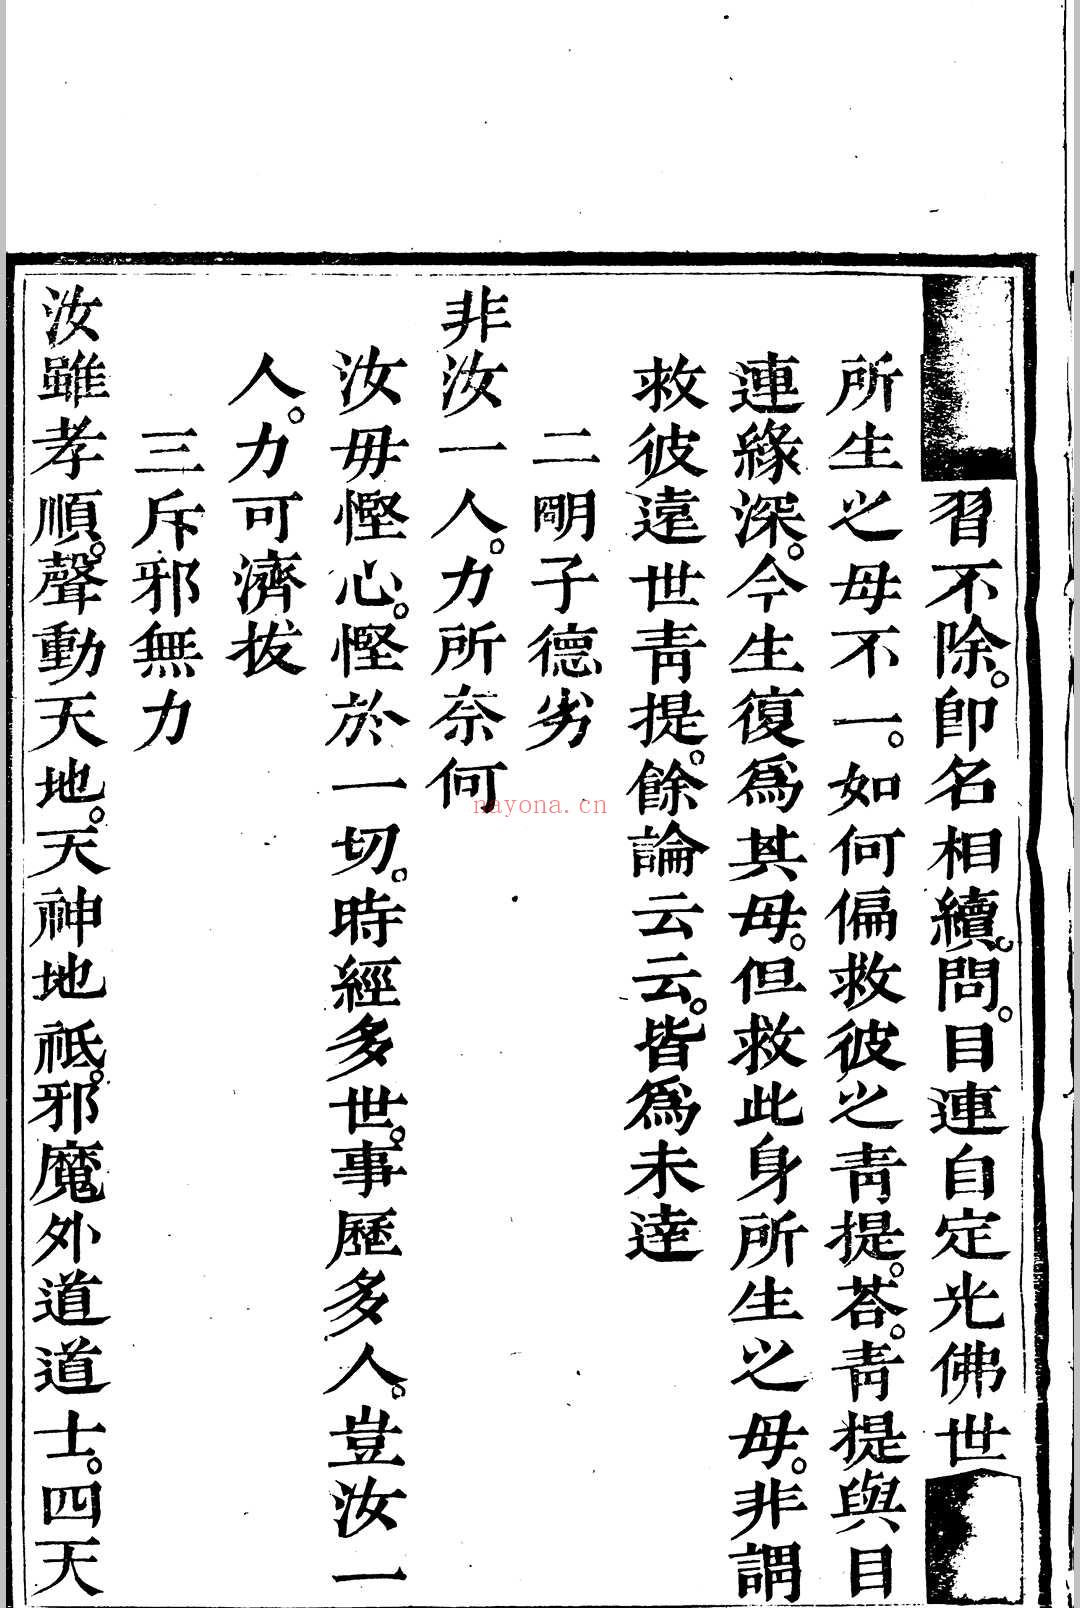 習不除。卽名相續。問。目連自定光佛世
所生之母不一。如何偏救彼之靑提。荅。靑提與目
連緣深。今生復爲其母。但救此身所生之母。非謂
救彼遠世靑提。餘論云云。皆爲未達
二明子德劣
非汝一人。力所奈何
汝毋慳心。慳於一切。時經多世。事歷多人。豈汝一
人。力可濟拔
三斥邪無力
汝雖孝順。聲動天地。天神地祇。邪魔外道道士。四天
nayona.cn